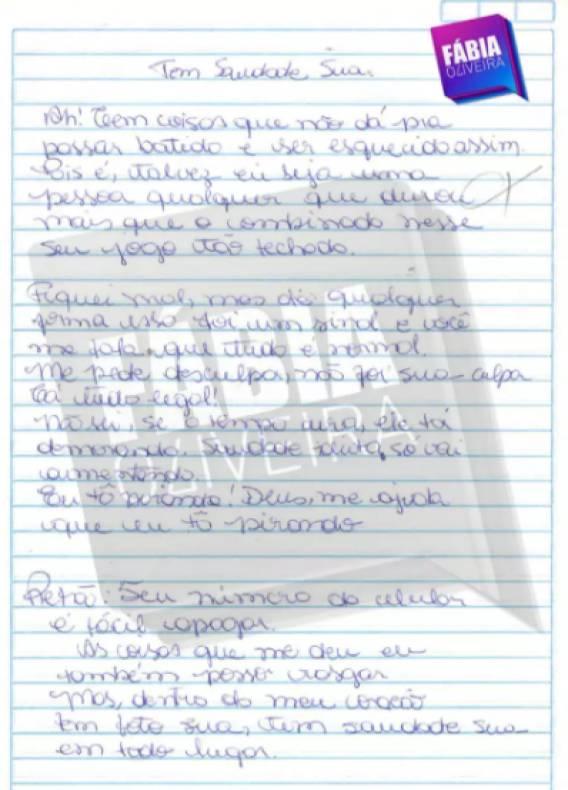 FÁBIA
OLIVEIRA
Tem Saudade Sua.
Ah! Teem coisas que não dá pra
passar batido e ser esquecido assim.
Pois é, talvez eu seja uma
pessoa qualquer que durou
mais que o combinado nesse
seu jogo tão fechado.
Fiquei mal, mas de qualquer
forma isso foi um sinal e você
me fala que tudo é normal.
Me pede desculpa, não foi sua culpa
Tá tudo legal!
Não sei, se o tempo cura, ele tá
demorando. Saudade só vai
aumentando.
Eu tô pirando! Deus, me ajuda
que eu tô pirando
FÁBIA
OLIVEIRA
Refrão: Seu número do celular
é fácil apagar.
As coisas que me deu eu
também posso rasgar
Mas, dentro do meu coração
tem foto sua, tem saudade sua
em todo lugar.